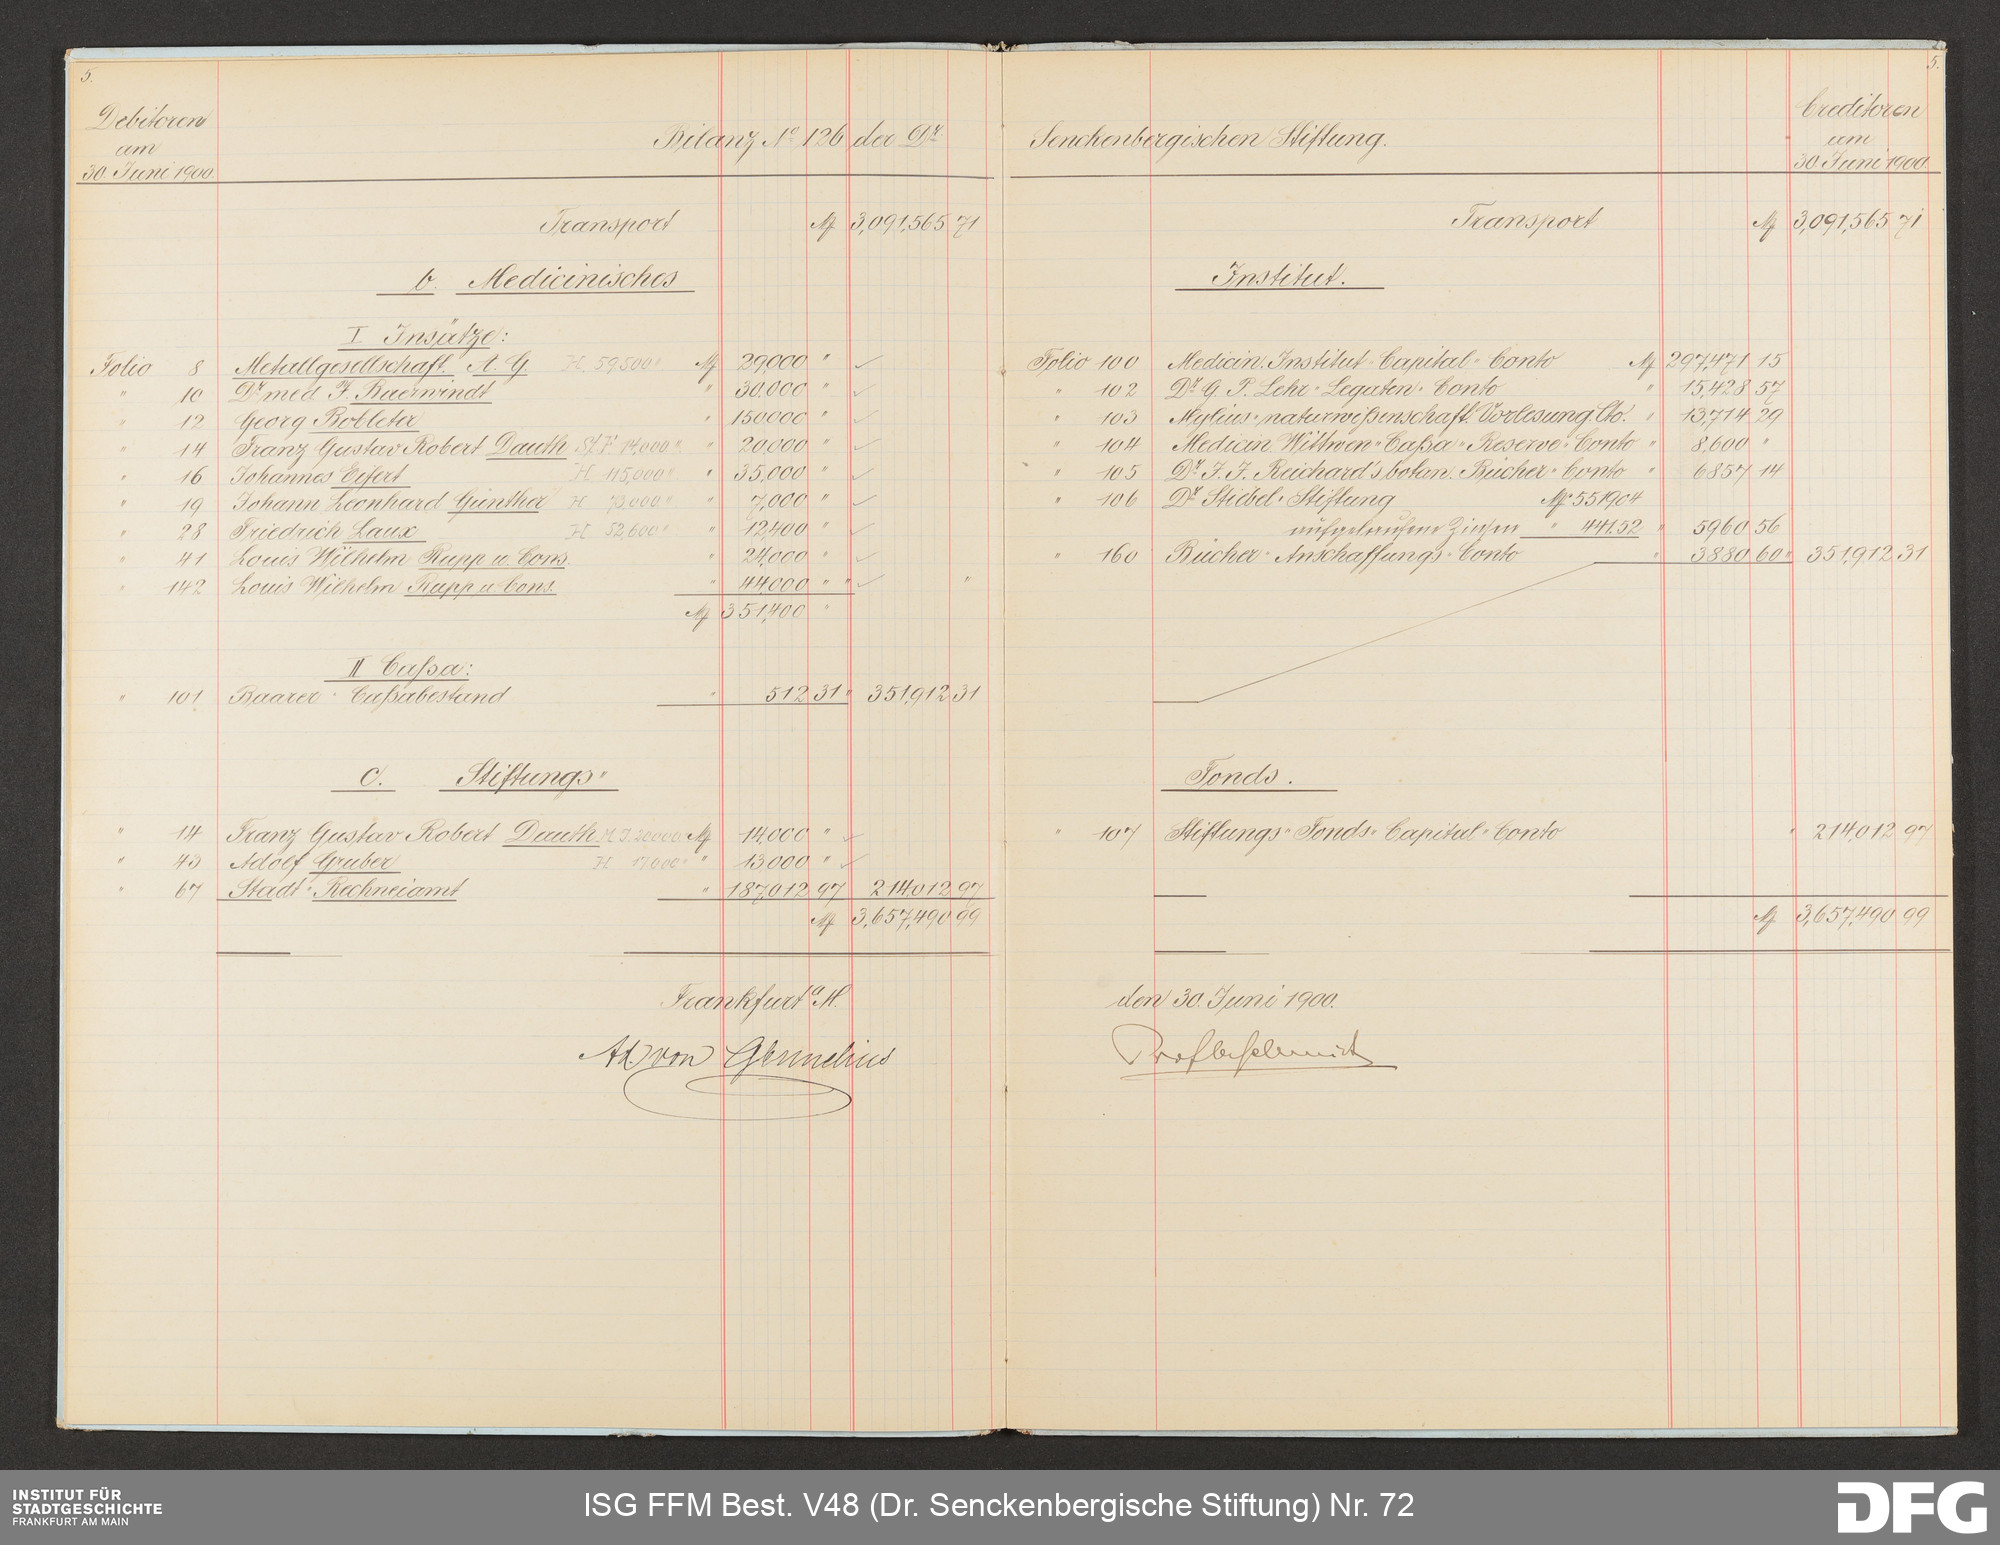 5.
Debitoren
am
30. Juni 1900.
Bilanz No 126 der Dr.
Transport M 3,091,565 71
b. Medicinisches
I Insätze:
Folio 8 Metallgesellschaft A. G. H. 59,500 " M 29000 "
" 10 Dr. med. F. Baerwindt " 30,000 "
" 12 Georg Bobleter " 150000 "
" 14 Franz Gustav Robert Dauth St. F. 14,000 " " 20,000 "
" 16 Johannes Eifert H 115,000 " " 35,000 "
" 19 Johann Leonhard Günther H 73,000 " " 7,000 "
" 28 Friedrich Laux H 52,600 " " 12,400 "
" 41 Louis Wilhelm Rupp u. Cons. " 24,000 "
" 142 Louis Wilhelm Rupp u. Cons. " 44,000 " " "
M 351,400 "
II Caßa:
" 101 Baarer Caßabestand " 512 31 " 351,912 31
c. Stiftungs"
" 14 Franz Gustav Robert Dauth M. I. 20000 M 14,000 "
" 43 Adolf Gruber H 17000 " " 13,000 "
" 67 Stadt-Rechneiamt " 187,012 97 214,012 97
M 3,657,490 99
Frankfurt a/M.
Ad. von
5.
Creditoren
am
30. Juni 1900.
Senckenbergischen Stiftung.
Transport M 3,091,565 71
Institut.
Folio 100 Medicin. Institut-Capital-Conto M 297,471 15
" 102 Dr. G. P. Lehr-Legaten-Conto " 15,428 57
" 103 Mylius-naturwißenschaft. Vorlesung. Cto. " 13,714 29
" 104 Medicin. Wittwen-Caßa-Reserve-Conto " 8,600 "
" 105 Dr. J. J. Reichard's botan. Bücher-Conto " 6857 14
" 106 Dr. Stiebel-Stiftung M 5519 04
aufgelaufene Zinsen " 441.52 " 5960 56
" 160 Bücher-Anschaffungs-Conto " 3880 60 " 351,912 31
Fonds.
" 107 Stiftungs-Fonds-Capital-Conto " 214,012 97
M 3,657,490 99
den 30. Juni 1900.
INSTITUT FÜR
STADTGESCHICHTE
FRANKFURT AM MAIN
ISG FFM Best. V48 (Dr. Senckenbergische Stiftung) Nr. 72
DFG